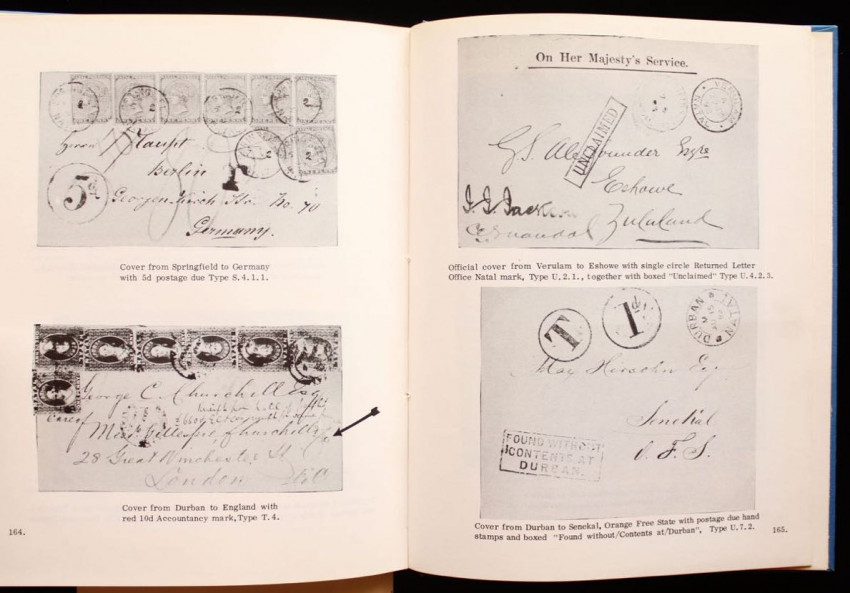 Herrn Haupt
Berlin
5d
T
Georgen Kirch Str. No. 70
Germany.
Cover from Springfield to Germany
with 5d postage due Type S.4.1.1.
George C. Churchill Esq
Care of
Miss Gillespie, Churchill
28 Great Winchester St
London
Cover from Durban to England with
red 10d Accountancy mark, Type T.4.
164.
On Her Majesty's Service.
UNCLAIMED
VERULAM
NATAL
G.S. Alexander Esqre
Eshowe
Zululand
Official cover from Verulam to Eshowe with single circle Returned Letter
Office Natal mark, Type U.2.1., together with boxed "Unclaimed" Type U.4.2.3.
T
1d
DURBAN
NATAL
Max Hirsohn Esq
Senekal
O.F.S.
FOUND WITHOUT
CONTENTS AT
DURBAN.
Cover from Durban to Senekal, Orange Free State with postage due hand
stamps and boxed "Found without/Contents at/Durban", Type U.7.2.
165.